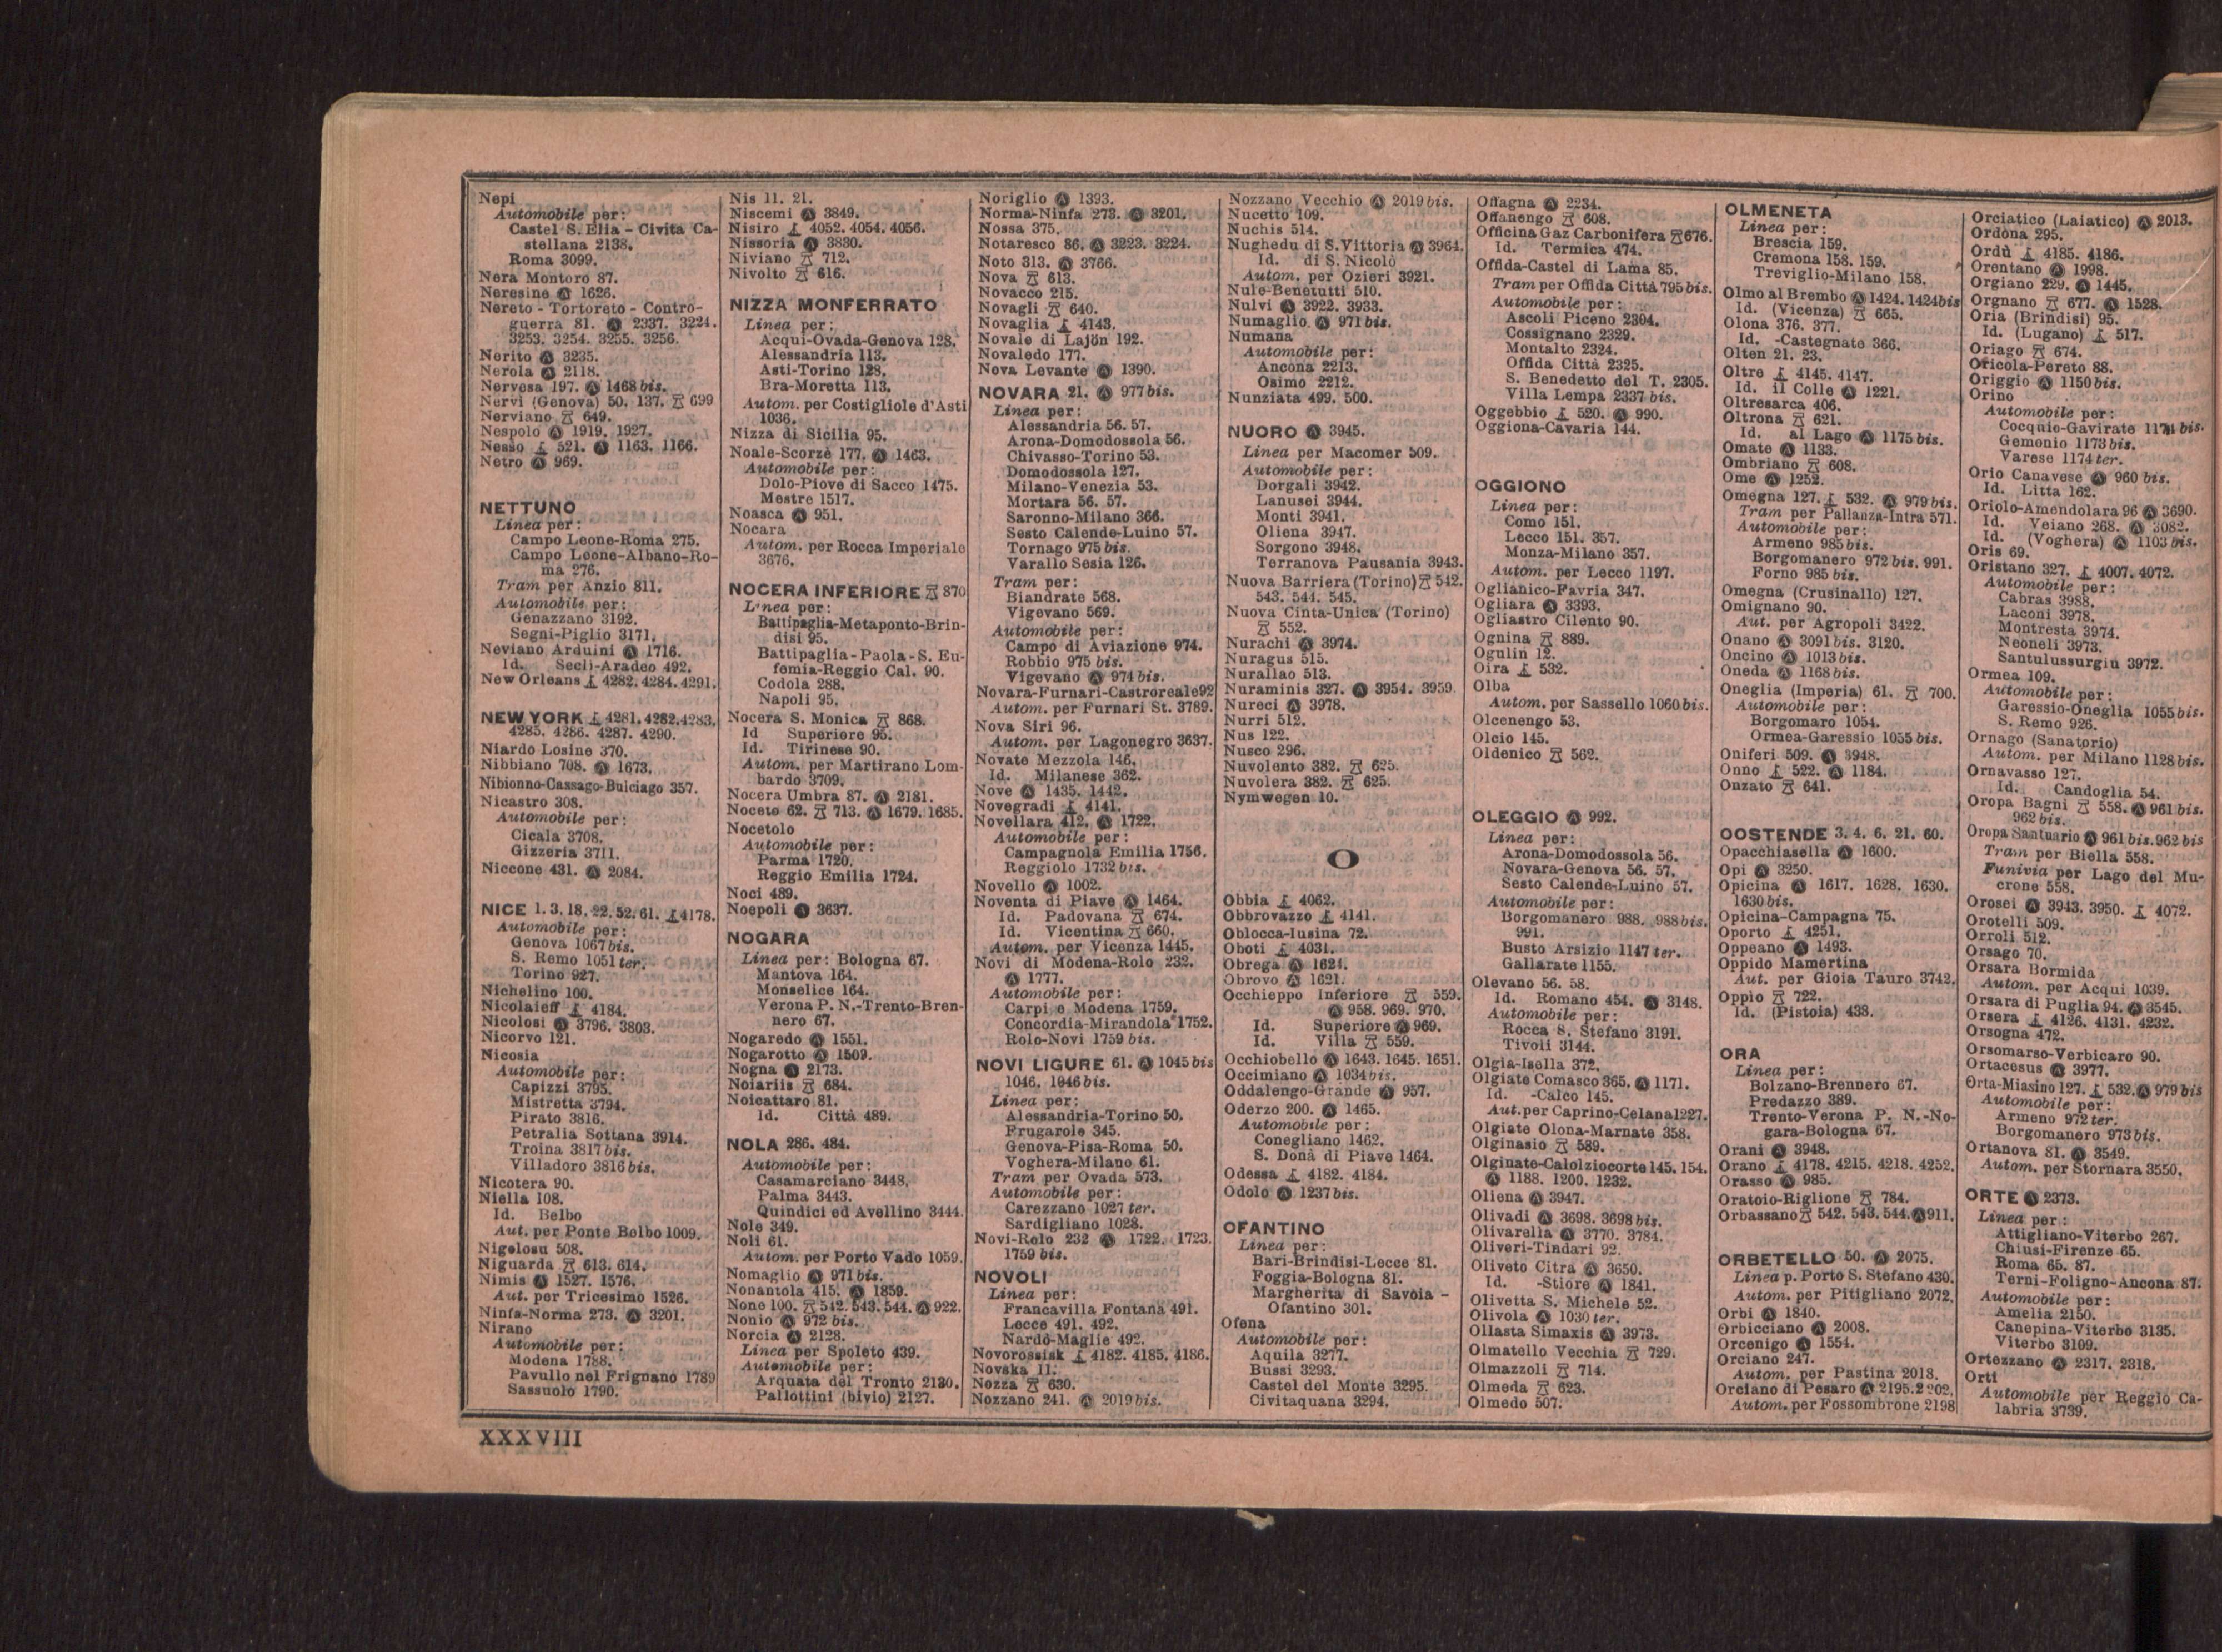 Nepi
Automobile per:
Castel S. Elia - Civita Ca-
stellana 2138.
Roma 3099.
Nera Montoro 87.
Neresine Ⓐ 1626.
Nereto - Tortoreto - Contro-
guerra 81. Ⓐ 2337. 3224.
3253. 3254. 3255. 3256.
Nerito Ⓐ 3235.
Nerola Ⓐ 2118.
Nervesa 197. Ⓐ 1468 bis.
Nervi (Genova) 50. 137. 699
Nerviano 649.
Nespolo Ⓐ 1919. 1927.
Nesso 521. Ⓐ 1163. 1166.
Netro Ⓐ 969.
NETTUNO
Linea per:
Campo Leone-Roma 275.
Campo Leone-Albano-Ro-
ma 276.
Tram per Anzio 811.
Automobile per:
Genazzano 3192.
Segni-Piglio 3171.
Neviano Arduini Ⓐ 1716.
Id. Secli-Aradeo 492.
New Orleans 4282. 4284. 4291.
NEW YORK 4281. 4282. 4283.
4285. 4286. 4287. 4290.
Niardo Losine 370.
Nibbiano 708. Ⓐ 1673.
Nibionno-Cassago-Bulciago 357.
Nicastro 308.
Automobile per:
Cicala 3708.
Gizzeria 3711.
Niccone 431. Ⓐ 2084.
NICE 1. 3. 18. 22. 52. 61. 4178.
Automobile per:
Genova 1067 bis.
S. Remo 1051 ter.
Torino 927.
Nichelino 100.
Nicolaieff 4184.
Nicolosi Ⓐ 3796. 3803.
Nicorvo 121.
Nicosia
Automobile per:
Capizzi 3795.
Mistretta 3794.
Pirato 3816.
Petralia Sottana 3914.
Troina 3817 bis.
Villadoro 3816 bis.
Nicotera 90.
Niella 108.
Id. Belbo
Aut. per Ponte Belbo 1009.
Nigolosu 508.
Niguarda 613. 614.
Nimis Ⓐ 1527. 1576.
Aut. per Tricesimo 1526.
Ninfa-Norma 273. Ⓐ 3201.
Nirano
Automobile per:
Modena 1788.
Pavullo nel Frignano 1789
Sassuolo 1790.
Nis 11. 21.
Niscemi Ⓐ 3849.
Nisiro 4052. 4054. 4056.
Nissoria Ⓐ 3830.
Niviano 712.
Nivolto 616.
NIZZA MONFERRATO
Linea per:
Acqui-Ovada-Genova 128.
Alessandria 113.
Asti-Torino 128.
Bra-Moretta 113.
Autom. per Costigliole d'Asti
1036.
Nizza di Sicilia 95.
Noale-Scorzè 177. Ⓐ 1463.
Automobile per:
Dolo-Piove di Sacco 1475.
Mestre 1517.
Noasca Ⓐ 951.
Nocara
Autom. per Rocca Imperiale
3676.
NOCERA INFERIORE 870
Linea per:
Battipaglia-Metaponto-Brin-
disi 95.
Battipaglia-Paola-S. Eu-
femia-Reggio Cal. 90.
Codola 288.
Napoli 95.
Nocera S. Monica 868.
Id Superiore 95.
Id. Tirinese 90.
Autom. per Martirano Lom-
bardo 3709.
Nocera Umbra 87. Ⓐ 2181.
Noceto 62. 713. Ⓐ 1679. 1685.
Nocetolo
Automobile per:
Parma 1720.
Reggio Emilia 1724.
Noci 489.
Noepoli Ⓐ 3637.
NOGARA
Linea per: Bologna 67.
Mantova 164.
Monselice 164.
Verona P. N.-Trento-Bren-
nero 67.
Nogaredo Ⓐ 1551.
Nogarotto Ⓐ 1509.
Nogna Ⓐ 2173.
Noiariis 684.
Noicattaro 81.
Id. Città 489.
NOLA 286. 484.
Automobile per:
Casamarciano 3448.
Palma 3443.
Quindici ed Avellino 3444.
Nole 349.
Noli 61.
Autom. per Porto Vado 1059.
Nomaglio Ⓐ 971 bis.
Nonantola 415. Ⓐ 1859.
None 100. 542. 543. 544. Ⓐ 922.
Nonio Ⓐ 972 bis.
Norcia Ⓐ 2128.
Linea per Spoleto 439.
Automobile per:
Arquata del Tronto 2130.
Pallottini (bivio) 2127.
Noriglio Ⓐ 1393.
Norma-Ninfa 273. Ⓐ 3201.
Nossa 375.
Notaresco 86. Ⓐ 3223. 3224.
Noto 313. Ⓐ 3766.
Nova 613.
Novacco 215.
Novagli 640.
Novaglia 4143.
Novale di Lajön 192.
Novaledo 177.
Nova Levante Ⓐ 1390.
NOVARA 21. Ⓐ 977 bis.
Linea per:
Alessandria 56. 57.
Arona-Domodossola 56.
Chivasso-Torino 53.
Domodossola 127.
Milano-Venezia 53.
Mortara 56. 57.
Saronno-Milano 366.
Sesto Calende-Luino 57.
Tornago 975 bis.
Varallo Sesia 126.
Tram per:
Biandrate 568.
Vigevano 569.
Automobile per:
Campo di Aviazione 974.
Robbio 975 bis.
Vigevano Ⓐ 974 bis.
Novara-Furnari-Castroreale 92
Autom. per Furnari St. 3789.
Nova Siri 96.
Autom. per Lagonegro 3637.
Novate Mezzola 146.
Id. Milanese 362.
Nove Ⓐ 1435. 1442.
Novegradi 4141.
Novellara 412. Ⓐ 1722.
Automobile per:
Campagnola Emilia 1756.
Reggiolo 1732 bis.
Novello Ⓐ 1002.
Noventa di Piave Ⓐ 1464.
Id. Padovana 674.
Id. Vicentina 660.
Autom. per Vicenza 1445.
Novi di Modena-Rolo 232.
Ⓐ 1777.
Automobile per:
Carpi e Modena 1759.
Concordia-Mirandola 1752.
Rolo-Novi 1759 bis.
NOVI LIGURE 61. Ⓐ 1045 bis
1046. 1046 bis.
Linea per:
Alessandria-Torino 50.
Frugarolo 345.
Genova-Pisa-Roma 50.
Voghera-Milano 61.
Tram per Ovada 573.
Automobile per:
Carezzano 1027 ter.
Sardigliano 1028.
Novi-Rolo 232 Ⓐ 1722. 1723.
1759 bis.
NOVOLI
Linea per:
Francavilla Fontana 491.
Lecce 491. 492.
Nardò-Maglie 492.
Novorossisk 4182. 4185. 4186.
Novska 11.
Nozza 630.
Nozzano 241. Ⓐ 2019 bis.
Nozzano Vecchio Ⓐ 2019 bis.
Nucetto 109.
Nuchis 514.
Nughedu di S. Vittoria Ⓐ 3964.
Id. di S. Nicolò
Autom. per Ozieri 3921.
Nule-Benetutti 510.
Nulvi Ⓐ 3922. 3933.
Numaglio Ⓐ 971 bis.
Numana
Automobile per:
Ancona 2213.
Osimo 2212.
Nunziata 499. 500.
NUORO Ⓐ 3945.
Linea per Macomer 509.
Automobile per:
Dorgali 3942.
Lanusei 3944.
Monti 3941.
Oliena 3947.
Sorgono 3948.
Terranova Pausania 3943.
Nuova Barriera (Torino) 542.
543. 544. 545.
Nuova Cinta-Unica (Torino)
552.
Nurachi Ⓐ 3974.
Nuragus 515.
Nurallao 513.
Nuraminis 327. Ⓐ 3954. 3959.
Nureci Ⓐ 3978.
Nurri 512.
Nus 122.
Nusco 296.
Nuvolento 382. 625.
Nuvolera 382. 625.
Nymwegen 10.
O
Obbia 4062.
Obbrovazzo 4141.
Oblocca-Iusina 72.
Oboti 4031.
Obrega Ⓐ 1624.
Obrovo Ⓐ 1621.
Occhieppo Inferiore 559.
Ⓐ 958. 969. 970.
Id. Superiore Ⓐ 969.
Id. Villa 559.
Occhiobello Ⓐ 1643. 1645. 1651.
Occimiano Ⓐ 1034 bis.
Oddalengo-Grande Ⓐ 957.
Oderzo 200. Ⓐ 1465.
Automobile per:
Conegliano 1462.
S. Donà di Piave 1464.
Odessa 4182. 4184.
Odolo Ⓐ 1237 bis.
OFANTINO
Linea per:
Bari-Brindisi-Lecce 81.
Foggia-Bologna 81.
Margherita di Savoia -
Ofantino 301.
Ofena
Automobile per:
Aquila 3277.
Bussi 3293.
Castel del Monte 3295.
Civitaquana 3294.
Offagna Ⓐ 2234.
Offanengo 608.
Officina Gaz Carbonifera 676.
Id. Termica 474.
Offida-Castel di Lama 85.
Tram per Offida Città 795 bis.
Automobile per:
Ascoli Piceno 2304.
Cossignano 2329.
Montalto 2324.
Offida Città 2325.
S. Benedetto del T. 2305.
Villa Lempa 2337 bis.
Oggebbio 520. Ⓐ 990.
Oggiona-Cavaria 144.
OGGIONO
Linea per:
Como 151.
Lecco 151. 357.
Monza-Milano 357.
Autom. per Lecco 1197.
Oglianico-Favria 347.
Ogliara Ⓐ 3393.
Ogliastro Cilento 90.
Ognina 889.
Ogulin 12.
Oira 532.
Olba
Autom. per Sassello 1060 bis.
Olcenengo 53.
Olcio 145.
Oldenico 562.
OLEGGIO Ⓐ 992.
Linea per:
Arona-Domodossola 56.
Novara-Genova 56. 57.
Sesto Calende-Luino 57.
Automobile per:
Borgomanero 988. 988 bis.
991.
Busto Arsizio 1147 ter.
Gallarate 1155.
Olevano 56. 58.
Id. Romano 454. Ⓐ 3148.
Automobile per:
Rocca S. Stefano 3191.
Tivoli 3144.
Olgia-Isella 372.
Olgiate Comasco 365. Ⓐ 1171.
Id. -Calco 145.
Aut. per Caprino-Celana 1227.
Olgiate Olona-Marnate 358.
Olginasio 589.
Olginate-Calolziocorte 145. 154.
Ⓐ 1188. 1200. 1232.
Oliena Ⓐ 3947.
Olivadi Ⓐ 3698. 3698 bis.
Olivarella Ⓐ 3770. 3784.
Oliveri-Tindari 92.
Oliveto Citra Ⓐ 3650.
Id. -Stiore Ⓐ 1841.
Olivetta S. Michele 52.
Olivola Ⓐ 1030 ter.
Ollasta Simaxis Ⓐ 3973.
Olmatello Vecchia 729.
Olmazzoli 714.
Olmeda 623.
Olmedo 507.
OLMENETA
Linea per:
Brescia 159.
Cremona 158. 159.
Treviglio-Milano 158.
Olmo al Brembo Ⓐ 1424. 1424 bis
Id. (Vicenza) 665.
Olona 376. 377.
Id. -Castegnate 366.
Olten 21. 23.
Oltre 4145. 4147.
Id. il Colle Ⓐ 1221.
Oltresarca 406.
Oltrona 621.
Id. al Lago Ⓐ 1175 bis.
Omate Ⓐ 1133.
Ombriano 608.
Ome Ⓐ 1252.
Omegna 127. 532. Ⓐ 979 bis.
Tram per Pallanza-Intra 571.
Automobile per:
Armeno 985 bis.
Borgomanero 972 bis. 991.
Forno 985 bis.
Omegna (Crusinallo) 127.
Omignano 90.
Aut. per Agropoli 3422.
Onano Ⓐ 3091 bis. 3120.
Oncino Ⓐ 1013 bis.
Oneda Ⓐ 1168 bis.
Oneglia (Imperia) 61. 700.
Automobile per:
Borgomaro 1054.
Ormea-Garessio 1055 bis.
Oniferi 509. Ⓐ 3948.
Onno 522. Ⓐ 1184.
Onzato 641.
OOSTENDE 3. 4. 6. 21. 60.
Opacchiasella Ⓐ 1600.
Opi Ⓐ 3250.
Opicina Ⓐ 1617. 1628. 1630.
1630 bis.
Opicina-Campagna 75.
Oporto 4251.
Oppeano Ⓐ 1493.
Oppido Mamertina
Aut. per Gioia Tauro 3742.
Oppio 722.
Id. (Pistoia) 438.
ORA
Linea per:
Bolzano-Brennero 67.
Predazzo 389.
Trento-Verona P. N.-No-
gara-Bologna 67.
Orani Ⓐ 3948.
Orano 4178. 4215. 4218. 4252.
Orasso Ⓐ 985.
Oratoio-Riglione 784.
Orbassano 542. 543. 544. Ⓐ 911.
ORBETELLO 50. Ⓐ 2075.
Linea p. Porto S. Stefano 430.
Autom. per Pitigliano 2072.
Orbi Ⓐ 1840.
Orbicciano Ⓐ 2008.
Orcenigo Ⓐ 1554.
Orciano 247.
Autom. per Pastina 2018.
Orciano di Pesaro Ⓐ 2195. 2202.
Autom. per Fossombrone 2198
Orciatico (Laiatico) Ⓐ 2013.
Ordona 295.
Ordù 4185. 4186.
Orentano Ⓐ 1998.
Orgiano 229. Ⓐ 1445.
Orgnano 677. Ⓐ 1528.
Oria (Brindisi) 95.
Id. (Lugano) 517.
Oriago 674.
Oricola-Pereto 88.
Origgio Ⓐ 1150 bis.
Orino
Automobile per:
Cocquio-Gavirate 1174 bis.
Gemonio 1173 bis.
Varese 1174 ter.
Orio Canavese Ⓐ 960 bis.
Id. Litta 162.
Oriolo-Amendolara 96 Ⓐ 3690.
Id. Veiano 268. Ⓐ 3082.
Id. (Voghera) Ⓐ 1103 bis.
Oris 69.
Oristano 327. 4007. 4072.
Automobile per:
Cabras 3988.
Laconi 3978.
Montresta 3974.
Neoneli 3973.
Santulussurgiu 3972.
Ormea 109.
Automobile per:
Garessio-Oneglia 1055 bis.
S. Remo 926.
Ornago (Sanatorio)
Autom. per Milano 1128 bis.
Ornavasso 127.
Id. Candoglia 54.
Oropa Bagni 558. Ⓐ 961 bis.
962 bis.
Oropa Santuario Ⓐ 961 bis. 962 bis
Tram per Biella 558.
Funivia per Lago del Mu-
crone 558.
Orosei Ⓐ 3943. 3950. 4072.
Orotelli 509.
Orroli 512.
Orsago 70.
Orsara Bormida
Autom. per Acqui 1039.
Orsara di Puglia 94. Ⓐ 3545.
Orsera 4126. 4131. 4232.
Orsogna 472.
Orsomarso-Verbicaro 90.
Ortacesus Ⓐ 3977.
Orta-Miasino 127. 532. Ⓐ 979 bis
Automobile per:
Armeno 972 ter.
Borgomanero 973 bis.
Ortanova 81. Ⓐ 3549.
Autom. per Stornara 3550.
ORTE Ⓐ 2373.
Linea per:
Attigliano-Viterbo 267.
Chiusi-Firenze 65.
Roma 65. 87.
Terni-Foligno-Ancona 87.
Automobile per:
Amelia 2150.
Canepina-Viterbo 3135.
Viterbo 3109.
Ortezzano Ⓐ 2317. 2318.
Orti
Automobile per Reggio Ca-
labria 3739.
XXXVIII